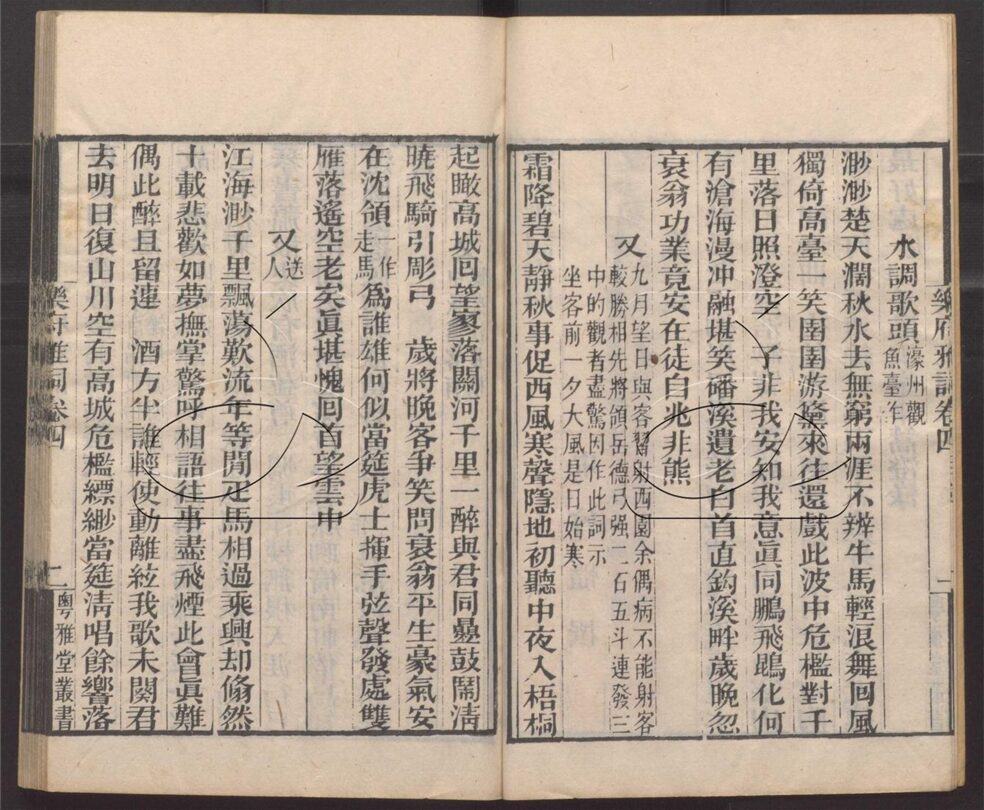 樂府雅詞卷四
水調歌頭
濠州觀
魚臺作
渺渺楚天濶秋水去無窮兩涯不辨牛馬輕浪舞回風
獨倚高臺一笑圉圉游鯈來往還戲此波中危檻對千
里落日照澄空　子非我安知我意眞同鵬飛鵾化何
有滄海漫冲融堪笑磻溪遺老白首直鈎溪畔歲晚忽
衰翁功業竟安在徒自兆非熊
又
九月望日與客習射西園余偶病不能射客
較勝相先將領岳德弓强二石五斗連發三
中的觀者盡驚因作此詞示
坐客前一夕大風是日始寒
霜降碧天靜秋事促西風寒聲隱地初聽中夜入梧桐
起瞰高城囘望寥落關河千里一醉與君同疊鼓鬧淸
曉飛騎引彫弓　歲將晚客爭笑問衰翁平生豪氣安
在沈領
一作
走馬
爲誰雄何似當筵虎士揮手弦聲發處雙
雁落遙空老矣眞堪愧囘首望雲中
又
送
人
江海渺千里飄蕩歎流年等閒疋馬相過乘興却翛然
十載悲歡如夢撫掌驚呼相語往事盡飛煙此會眞難
偶此醉且留連　酒方半誰輕使動離絃我歌未闋君
去明日復山川空有高城危檻縹緲當筵淸唱餘響落
樂府雅詞卷四
二
粵雅堂叢書